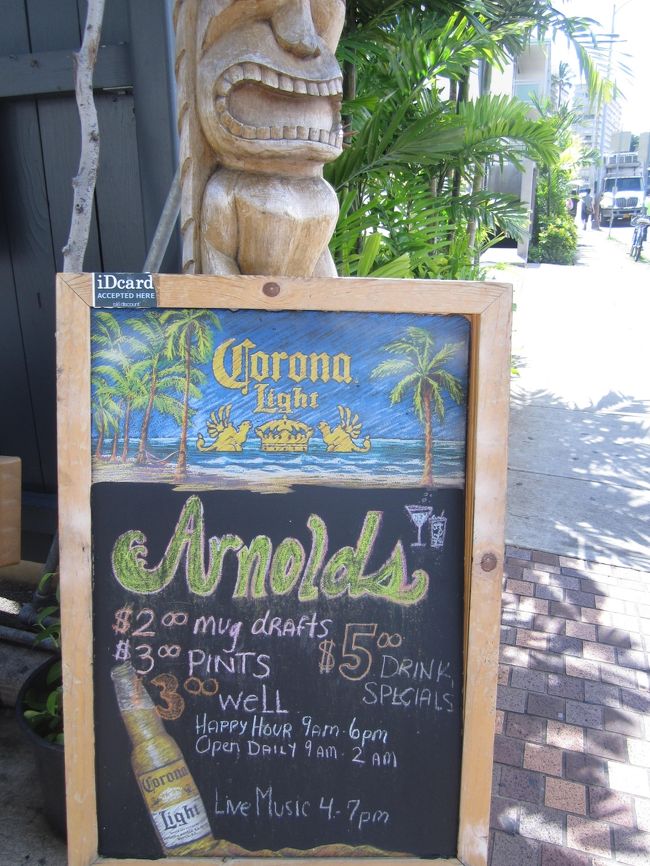 iDcard
ACCEPTED HERE
Corona
Light
Arnolds
$2.00 mug drafts
$3.00 PINTS
$5.00 DRINK SPECIALS
$3.00 well
HAPPY HOUR 9am-6pm
Open DAILY 9 AM - 2 AM
Corona
Light
Live Music 4-7pm